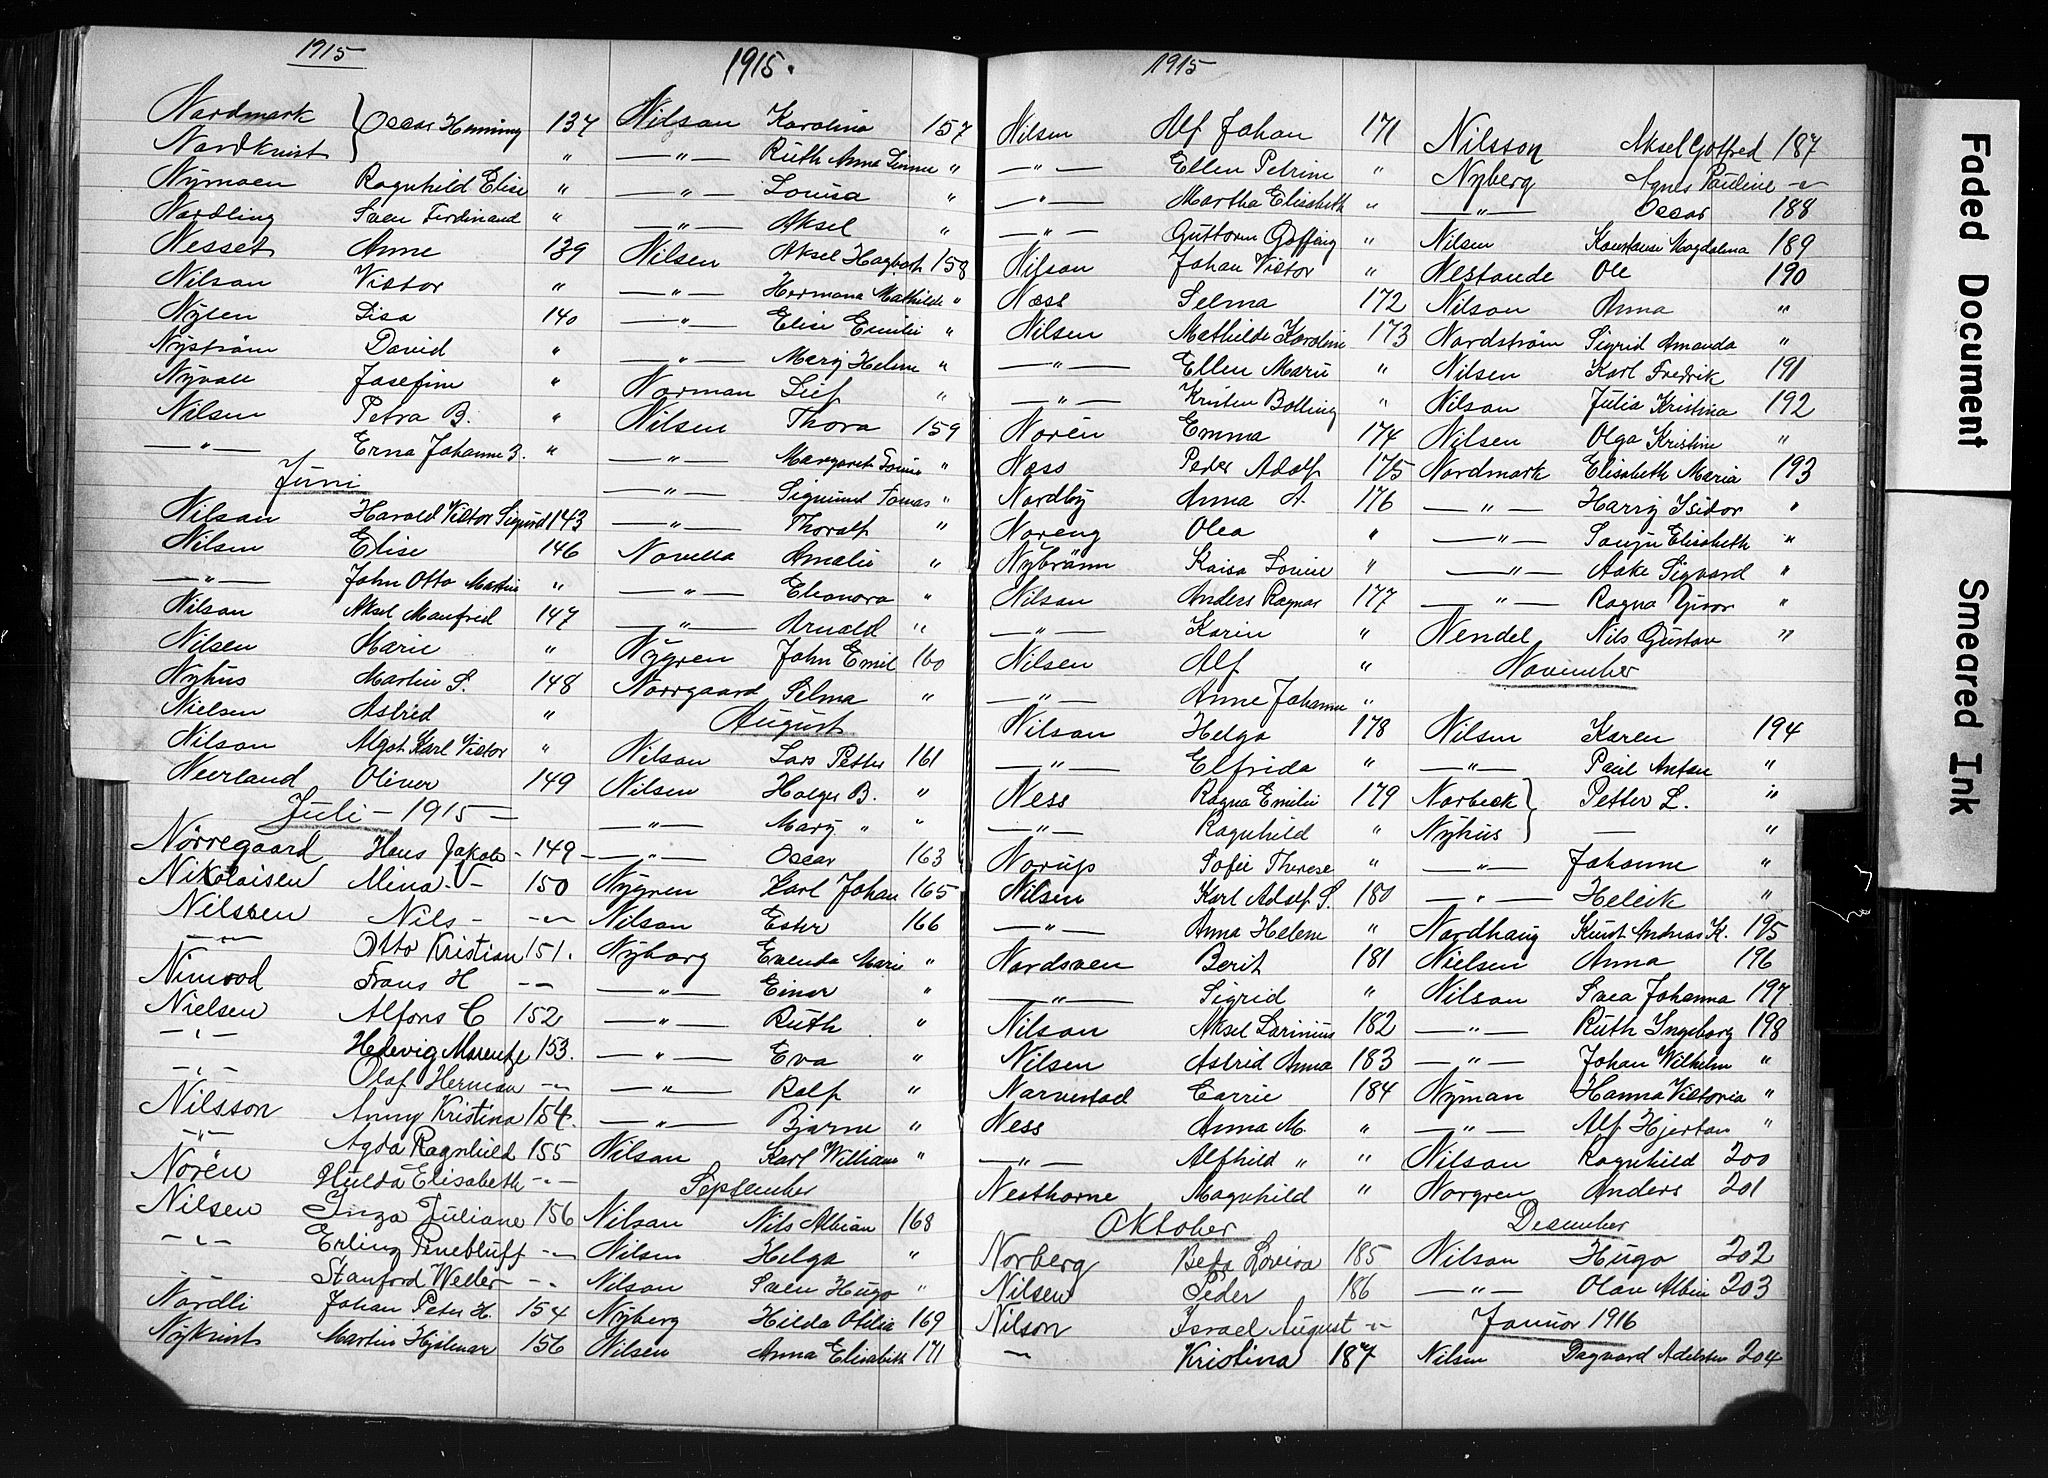 1915
Nordmark } Oscar Henning 137
Nordkvist "
Nymoen Ragnhild Elise "
Nordling Sven Ferdinand "
Nesset Anne 139
Nilson Victor "
Nysen Lisa 140
Nyström David "
Nyvall Josefine "
Nilsen Petra B. "
—"— Erna Johanne B. "
Juni
Nilson Harald Victor Sigurd 143
Nilsen Elise 146
—"— John Otto Martin "
Nilson Aksel Manfred 147
Nilsen Marie "
Nyhus Martin S. 148
Nielsen Astrid "
Nilson Algot Karl Victor "
Neerland Oliver 149
Juli – 1915 –
Nörregaard Hans Jakob – 149 –
Nikolaisen Mina – V – 150
Nilsen Nils – –"–
–"– Otto Kristian 151.
Nimrod Frans H – –
Nielsen Alfons C 152
–"– Hedevig Marentze 153.
–"– Olaf Herman –"–
Nilsson Anny Kristina 154.
–"– Agda Ragnhild 155
Norén Hulda Elisabeth –"–
Nilsen Inga Juliane 156
–"– Erling Pinebluff –"–
Stanford Weller – –
Nordli Johan Peter H. 154
Nykvist Martin Hjalmar 156
1915.
Nilson Karolina 157
—"— Ruth Anna Linnea "
—"— Lovisa "
—"— Aksel "
Nilsen Aksel Hagbart 158
—"— Hermana Mathilde "
—"— Elise Emilie "
—"— Mary Helene "
Norman Leif "
Nilsen Thora 159
—"— Margareth Louise "
—"— Sigmund Tomas "
—"— Thoralf "
Novella Amalie "
—"— Eleonora "
—"— Arnold "
Nygren John Emil 160
Norrgaard Selma "
August
Nilson Lars Petter 161
Nilsen Holger B. "
—"— Mary " "
—"— Oscar 163
Nygren Karl Johan 165
Nilson Ester 166
Nyborg Evenda Marie "
—"— Einar "
—"— Ruth "
—"— Eva "
—"— Rolf "
—"— Bjarne "
Nilson Karl William "
September
Nilson Nils Albian 168
Nilsen Helga "
Nilson Sven Hugo "
Nyberg Hilda Otilia 169
Nilsen Anna Elisabeth 171
1915
Nilsen Alf Johan 171
—"— Ellen Petrine "
—"— Martha Elisabeth "
—"— Guttorm "
Nilson Johan Victor "
Næss Selma 172
Nilsen Mathilde Karoline 173
—"— Ellen Marie "
—"— Kristen Bolling "
Norén Emma 174
Næss Peder Adolf 175
Nordby Anna A. 176
Noreng Olea "
Nybränn Kaisa Louise "
Nilson Anders Ragnar 177
—"— Karin "
Nilsen Alf "
—"— Anne Johanne "
Nilson Helga 178
—"— Elfrida "
Ness Ragna Emilie 179
—"— Ragnhild "
Norup Sofie Therese "
Nilsen Karl Adolf S. 180
—"— Anna Helene "
Nordsven Berit 181
—"— Sigrid "
Nilson Aksel Larinius 182
Nilsen Astrid Anna 183
Narvestad Carrie 184
Ness Anna M. "
—"— Alfhild " "
Nesthorne Magnhild "
Oktober
Norberg Beda Lovisa 185
Nilsen Peder 186
Nilson Israel August –"–
–"– Kristina 187
Nilsson Aksel Gotfred 187
Nyberg Agnes Pauline –"–
—"— Oscar 188
Nilsen Konstanse Magdalena 189
Nestande Ole 190
Nilson Anna "
Nordström Sigrid Amanda "
Nilsen Karl Fredrik 191
Nilson Julia Kristina 192
Nilsen Olga Kristine "
Nordmark Elisabeth Maria 193
—"— Harry Isidor "
—"— Sonja Elisabeth "
—"— Aake Sigvard "
—"— Ragna Givor "
Nendel Nils Gustav "
November
Nilsen Karen 194
—"— Paul Anton "
Norbeck } Petter L. "
Nyhus — "
—"— Johanne "
—"— Helvik "
Nordhaug Knut Andreas K. 195
Nielsen Anna 196
Nilson Svea Johanna 197
—"— Ruth Ingeborg 198
—"— Johan Wilhelm "
Nyman Hanna Viktoria "
—"— Alf Hjertan "
Nilson Ragnhild 200
Norgren Anders 201
Desember
Nilson Hugo 202
—"— Olav Albin 203
Januar 1916
Nilsen Dagvard Adelsten 204
Faded Document
Smeared Ink